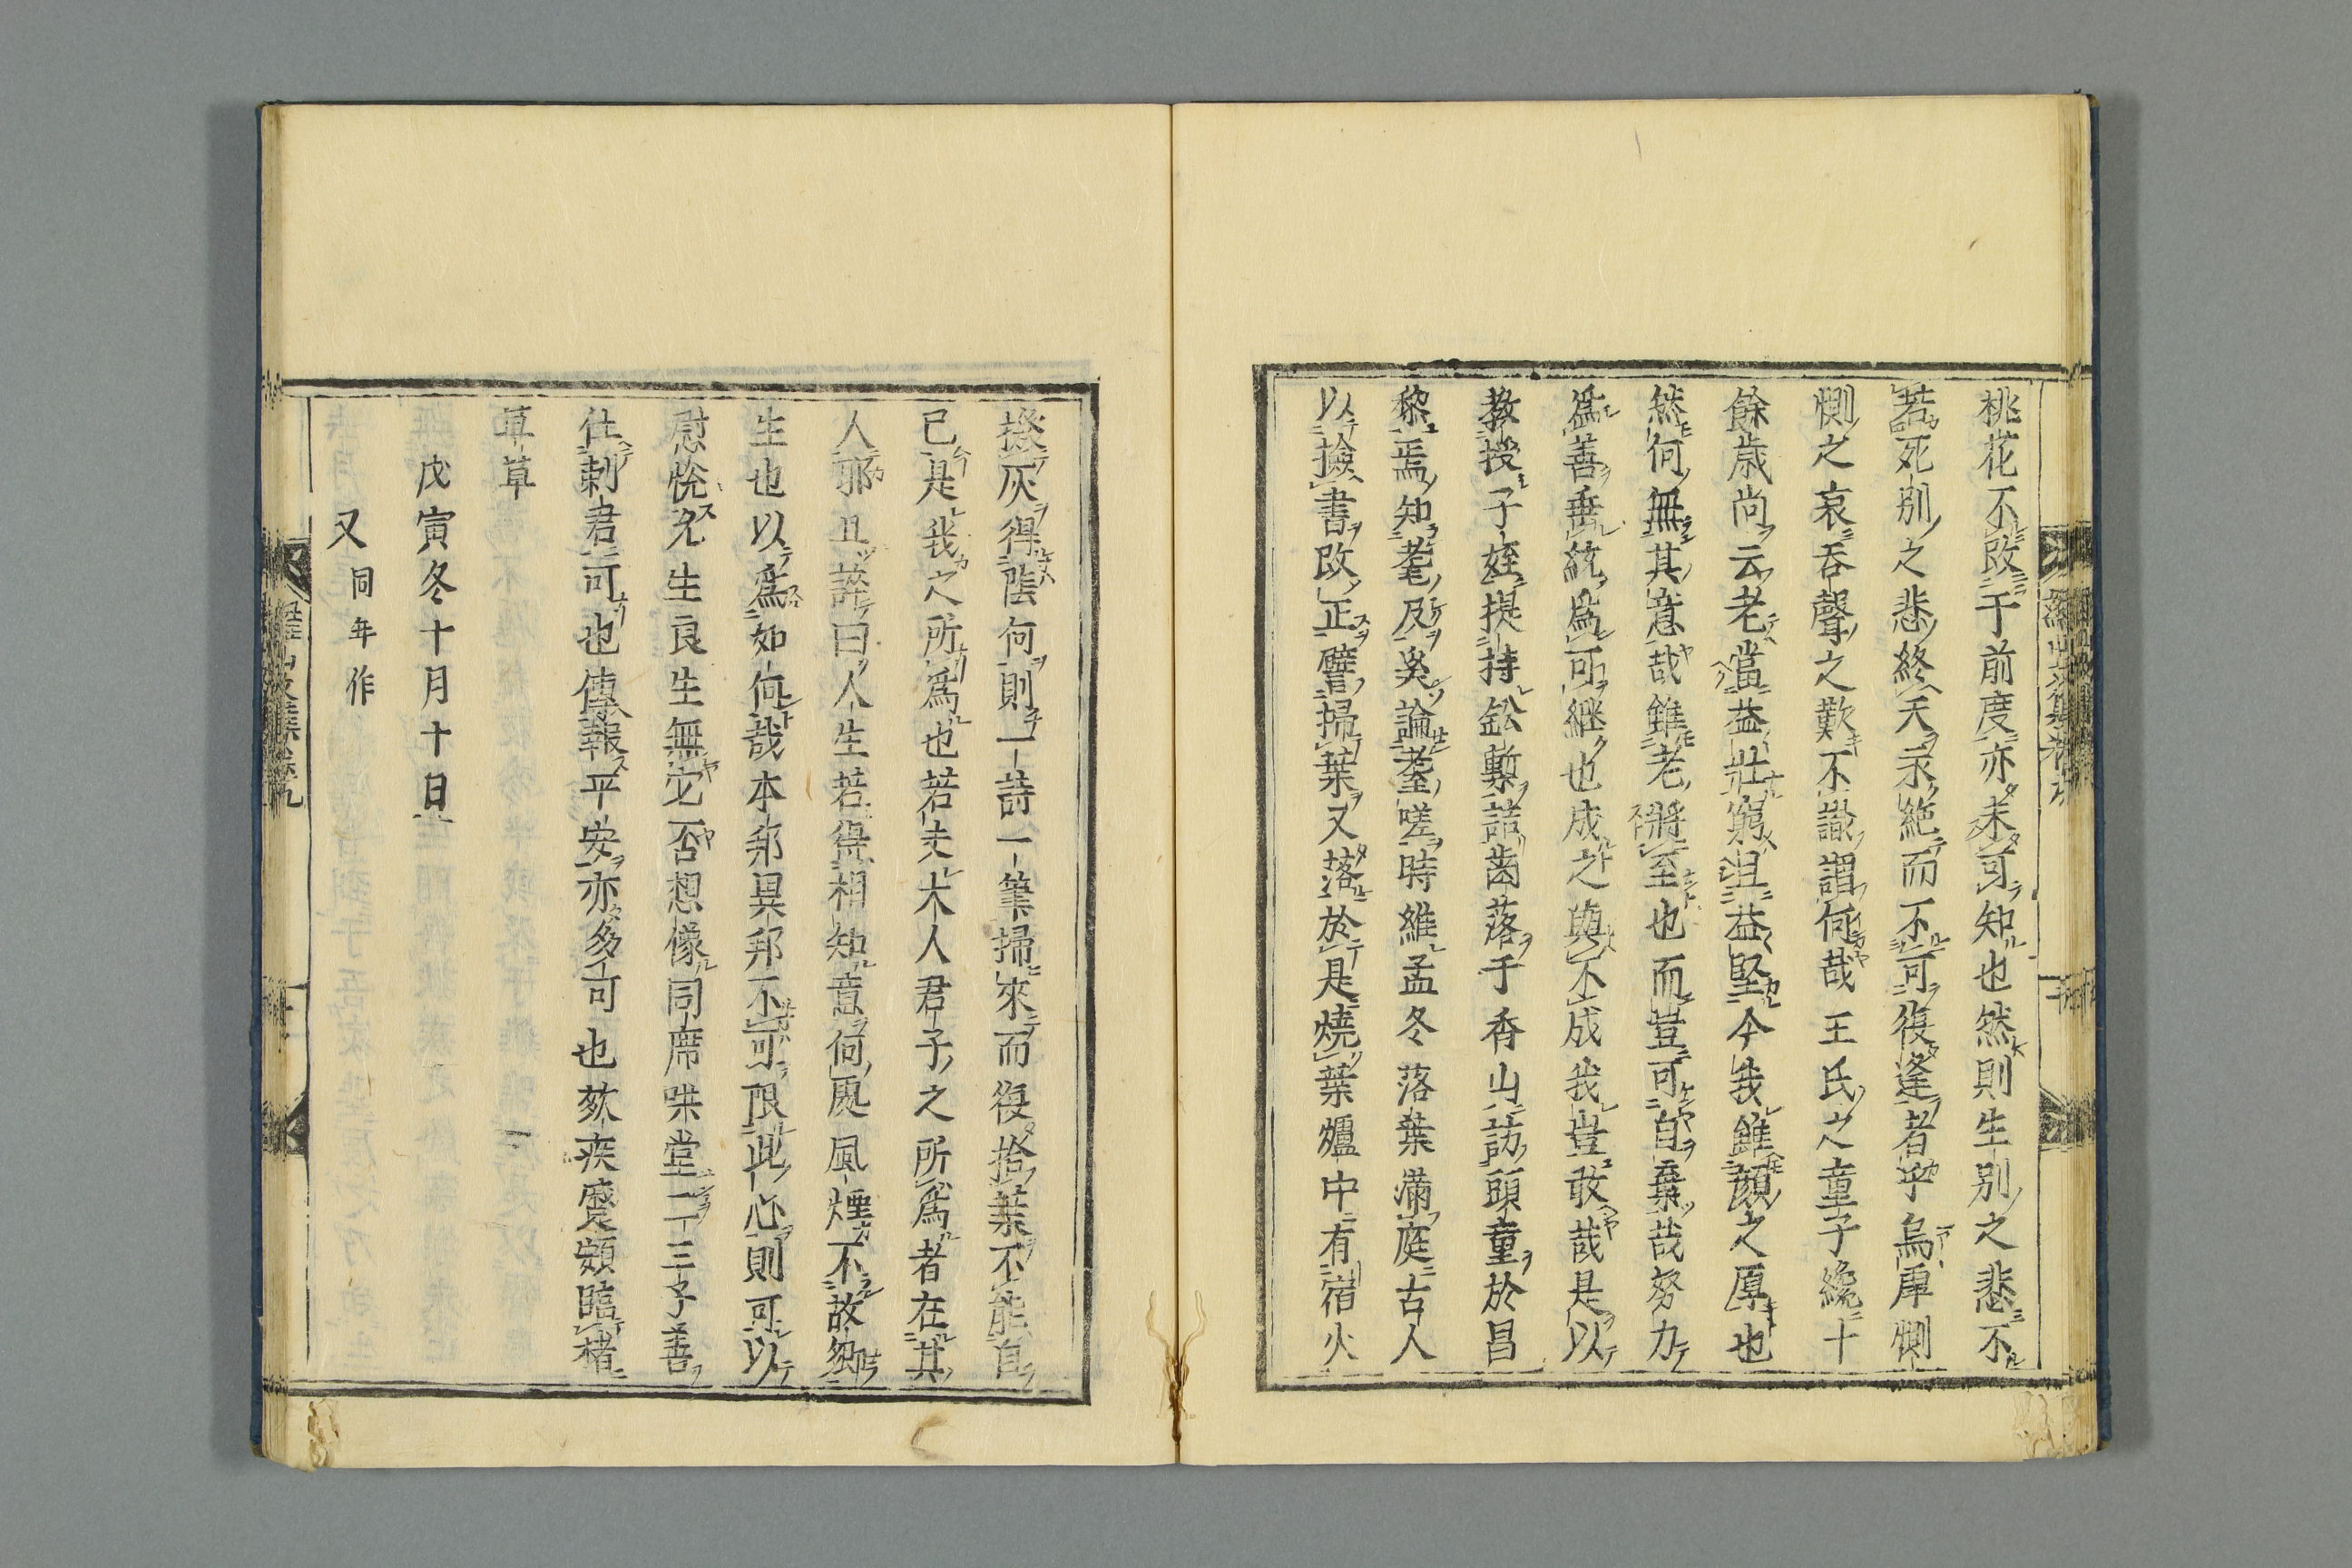 桃花不改于前度亦未可知也然則生別之悲不
若死別之悲終天永絶而不可復逢者乎烏虖惻
惻之哀吞聲之歎不識謂何哉王氏之童子纔十
餘歳尚云老當益壯窮且益堅今我雖顔之厚也
然何無其意哉雖老將至也而豈可自棄哉努力
爲善垂統爲可繼也成之與不成我豈敢哉是以
教授子姪提持鉛槧詰齒落于香山訪頭童於昌
黎焉知耄及奚論耋嗟時維孟冬落葉滿庭古人
以撿書改正譬掃葉又落於是燒葉爐中有宿火
撥灰得陰何則一詩一筆掃來而復拾葉不能自
已是我之所爲也若夫大人君子之所爲者在其
人邪且諺曰人生若得相知意何處風煙不故郷
生也以爲如何哉本邦異邦不可限此心則可以
慰恍允生良生無它否想像同席咲堂二三子善
仕刺君可也傳報平安亦多可也欬疾霑頞臨楮
草草
戊寅冬十月十日
又同年作
羅山文集卷九